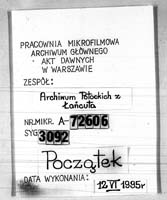 PRACOWNIA MIKROFILMOWA
ARCHIWUM GŁÓWNEGO
AKT DAWNYCH
W WARSZAWIE
ZESPÓŁ:
Archiwum Potockich z
Łańcuta
NR.MIKR. A-72606
SYG. 3092
Początek
DATA WYKONANIA:
12 VI 1995r